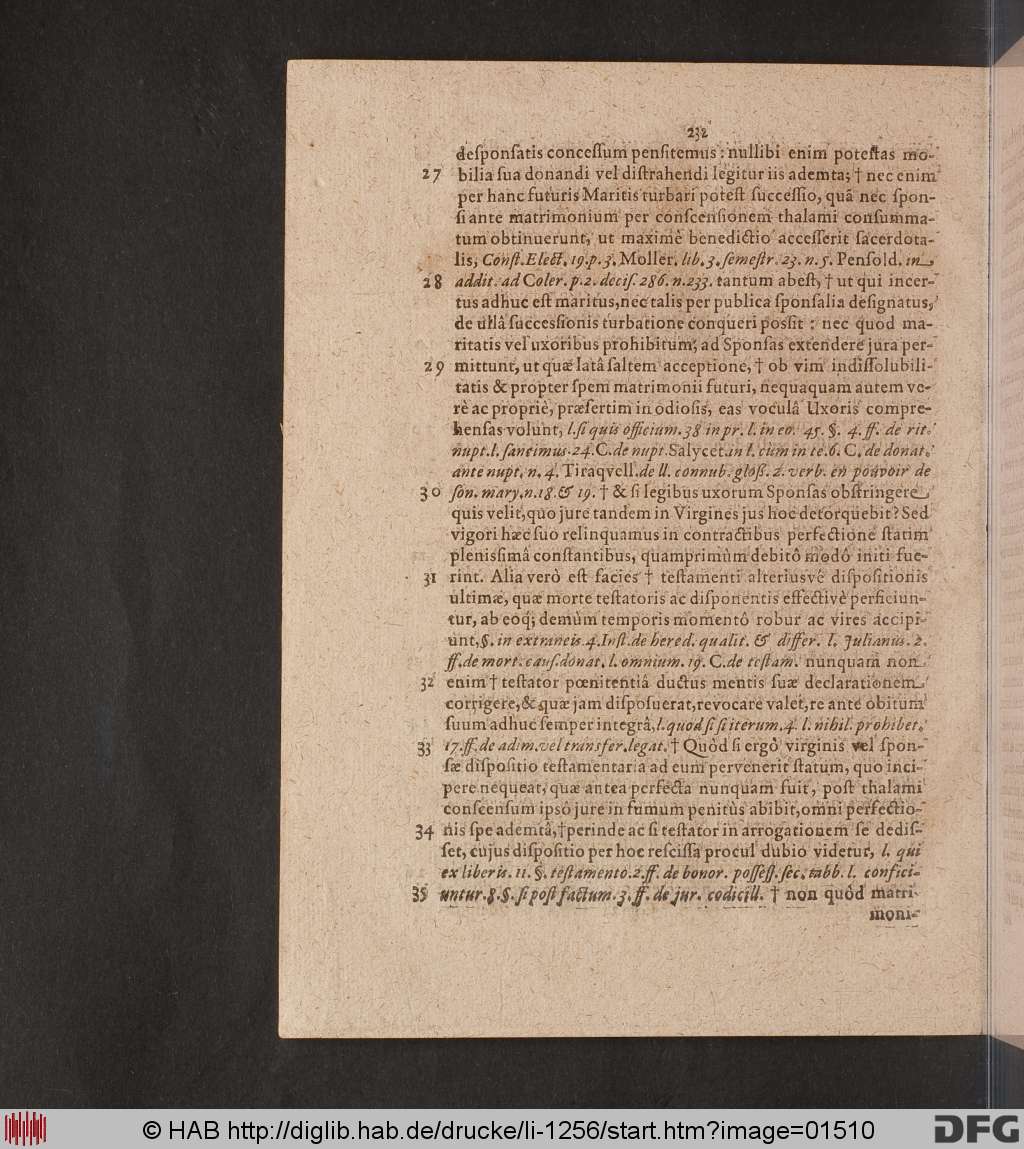 232
deſponſatis conceſſum penſitemus : nullibi enim poteſtas mo-
27 bilia ſua donandi vel diſtrahendi legitur iis ademta; † nec enim
per hanc futuris Maritis turbari poteſt ſucceſſio, quã nec ſpon-
ſi ante matrimonium per conſcenſionem thalami conſumma-
tum obtinuerunt, ut maximè benedictio acceſſerit ſacerdota-
lis, Conſt. Elect. 19. p. 3. Moller. lib. 3. ſemeſtr. 23. n. 5. Penſold. in
28 addit. ad Coler. p. 2. deciſ. 286. n. 233. tantum abeſt, † ut qui incer-
tus adhuc eſt maritus, nec talis per publica ſponſalia deſignatus,
de ullâ ſucceſſionis turbatione conqueri poſſit : nec quod ma-
ritatis vel uxoribus prohibitum, ad Sponſas extendere jura per-
29 mittunt, ut quæ latâ ſaltem acceptione, † ob vim indiſſolubili-
tatis & propter ſpem matrimonii futuri, nequaquam autem ve-
rè ac propriè, præſertim in odioſis, eas voculâ Uxoris compre-
henſas volunt, l. ſi quis officium. 38 in pr. l. in eo. 45. §. 4. ff. de rit.
nupt. l. ſancimus. 24. C. de nupt. Salycet. in l. cùm in te. 6. C. de donat.
ante nupt. n. 4. Tiraqvell. de ll. connub. gloß. 2. verb. en pouvoir de
30 ſon. mary. n. 18. & 19. † & ſi legibus uxorum Sponſas obſtringere
quis velit, quo jure tandem in Virgines jus hoc detorquebit? Sed
vigori hæc ſuo relinquamus in contractibus perfectione ſtatim
pleniſſimâ conſtantibus, quamprimùm debitô modô initi fue-
31 rint. Alia verò eſt facies † teſtamenti alteriusvè diſpoſitionis
ultimæ, quæ morte teſtatoris ac diſponentis effectivè perficiun-
tur, ab eoq́; demùm temporis momentô robur ac vires accipi-
unt, §. in extraneis. 4. Inſt. de hered. qualit. & differ. l. Julianus. 2.
ff. de mort. cauſ. donat. l. omnium. 19. C. de teſtam. nunquam non
32 enim † teſtator pœnitentiâ ductus mentis ſuæ declarationem
corrigere, & quæ jam diſpoſuerat, revocare valet, re ante obitum
ſuum adhuc ſemper integrâ, l. quod ſi ſi iterum. 4. l. nihil. prohibet.
33 17. ff. de adim. vel transfer. legat. † Quòd ſi ergò virginis vel ſpon-
ſæ diſpoſitio teſtamentaria ad eum pervenerit ſtatum, quo inci-
pere nequeat, quæ antea perfecta nunquam fuit, poſt thalami
conſcenſum ipsô jure in fumum penitùs abibit, omni perfectio-
34 nis ſpe ademtâ, † perinde ac ſi teſtator in arrogationem ſe dediſ-
ſet, cujus diſpoſitio per hoc reſciſſa procul dubio videtur, l. qui
ex liberis. 11. §. teſtamento. 2. ff. de bonor. poſſeſſ. ſec. tabb. l. confici-
35 untur. 8. §. ſi poſt factum. 3. ff. de jur. codicill. † non quòd matri-
moni-
© HAB http://diglib.hab.de/drucke/li-1256/start.htm?image=01510
DFG